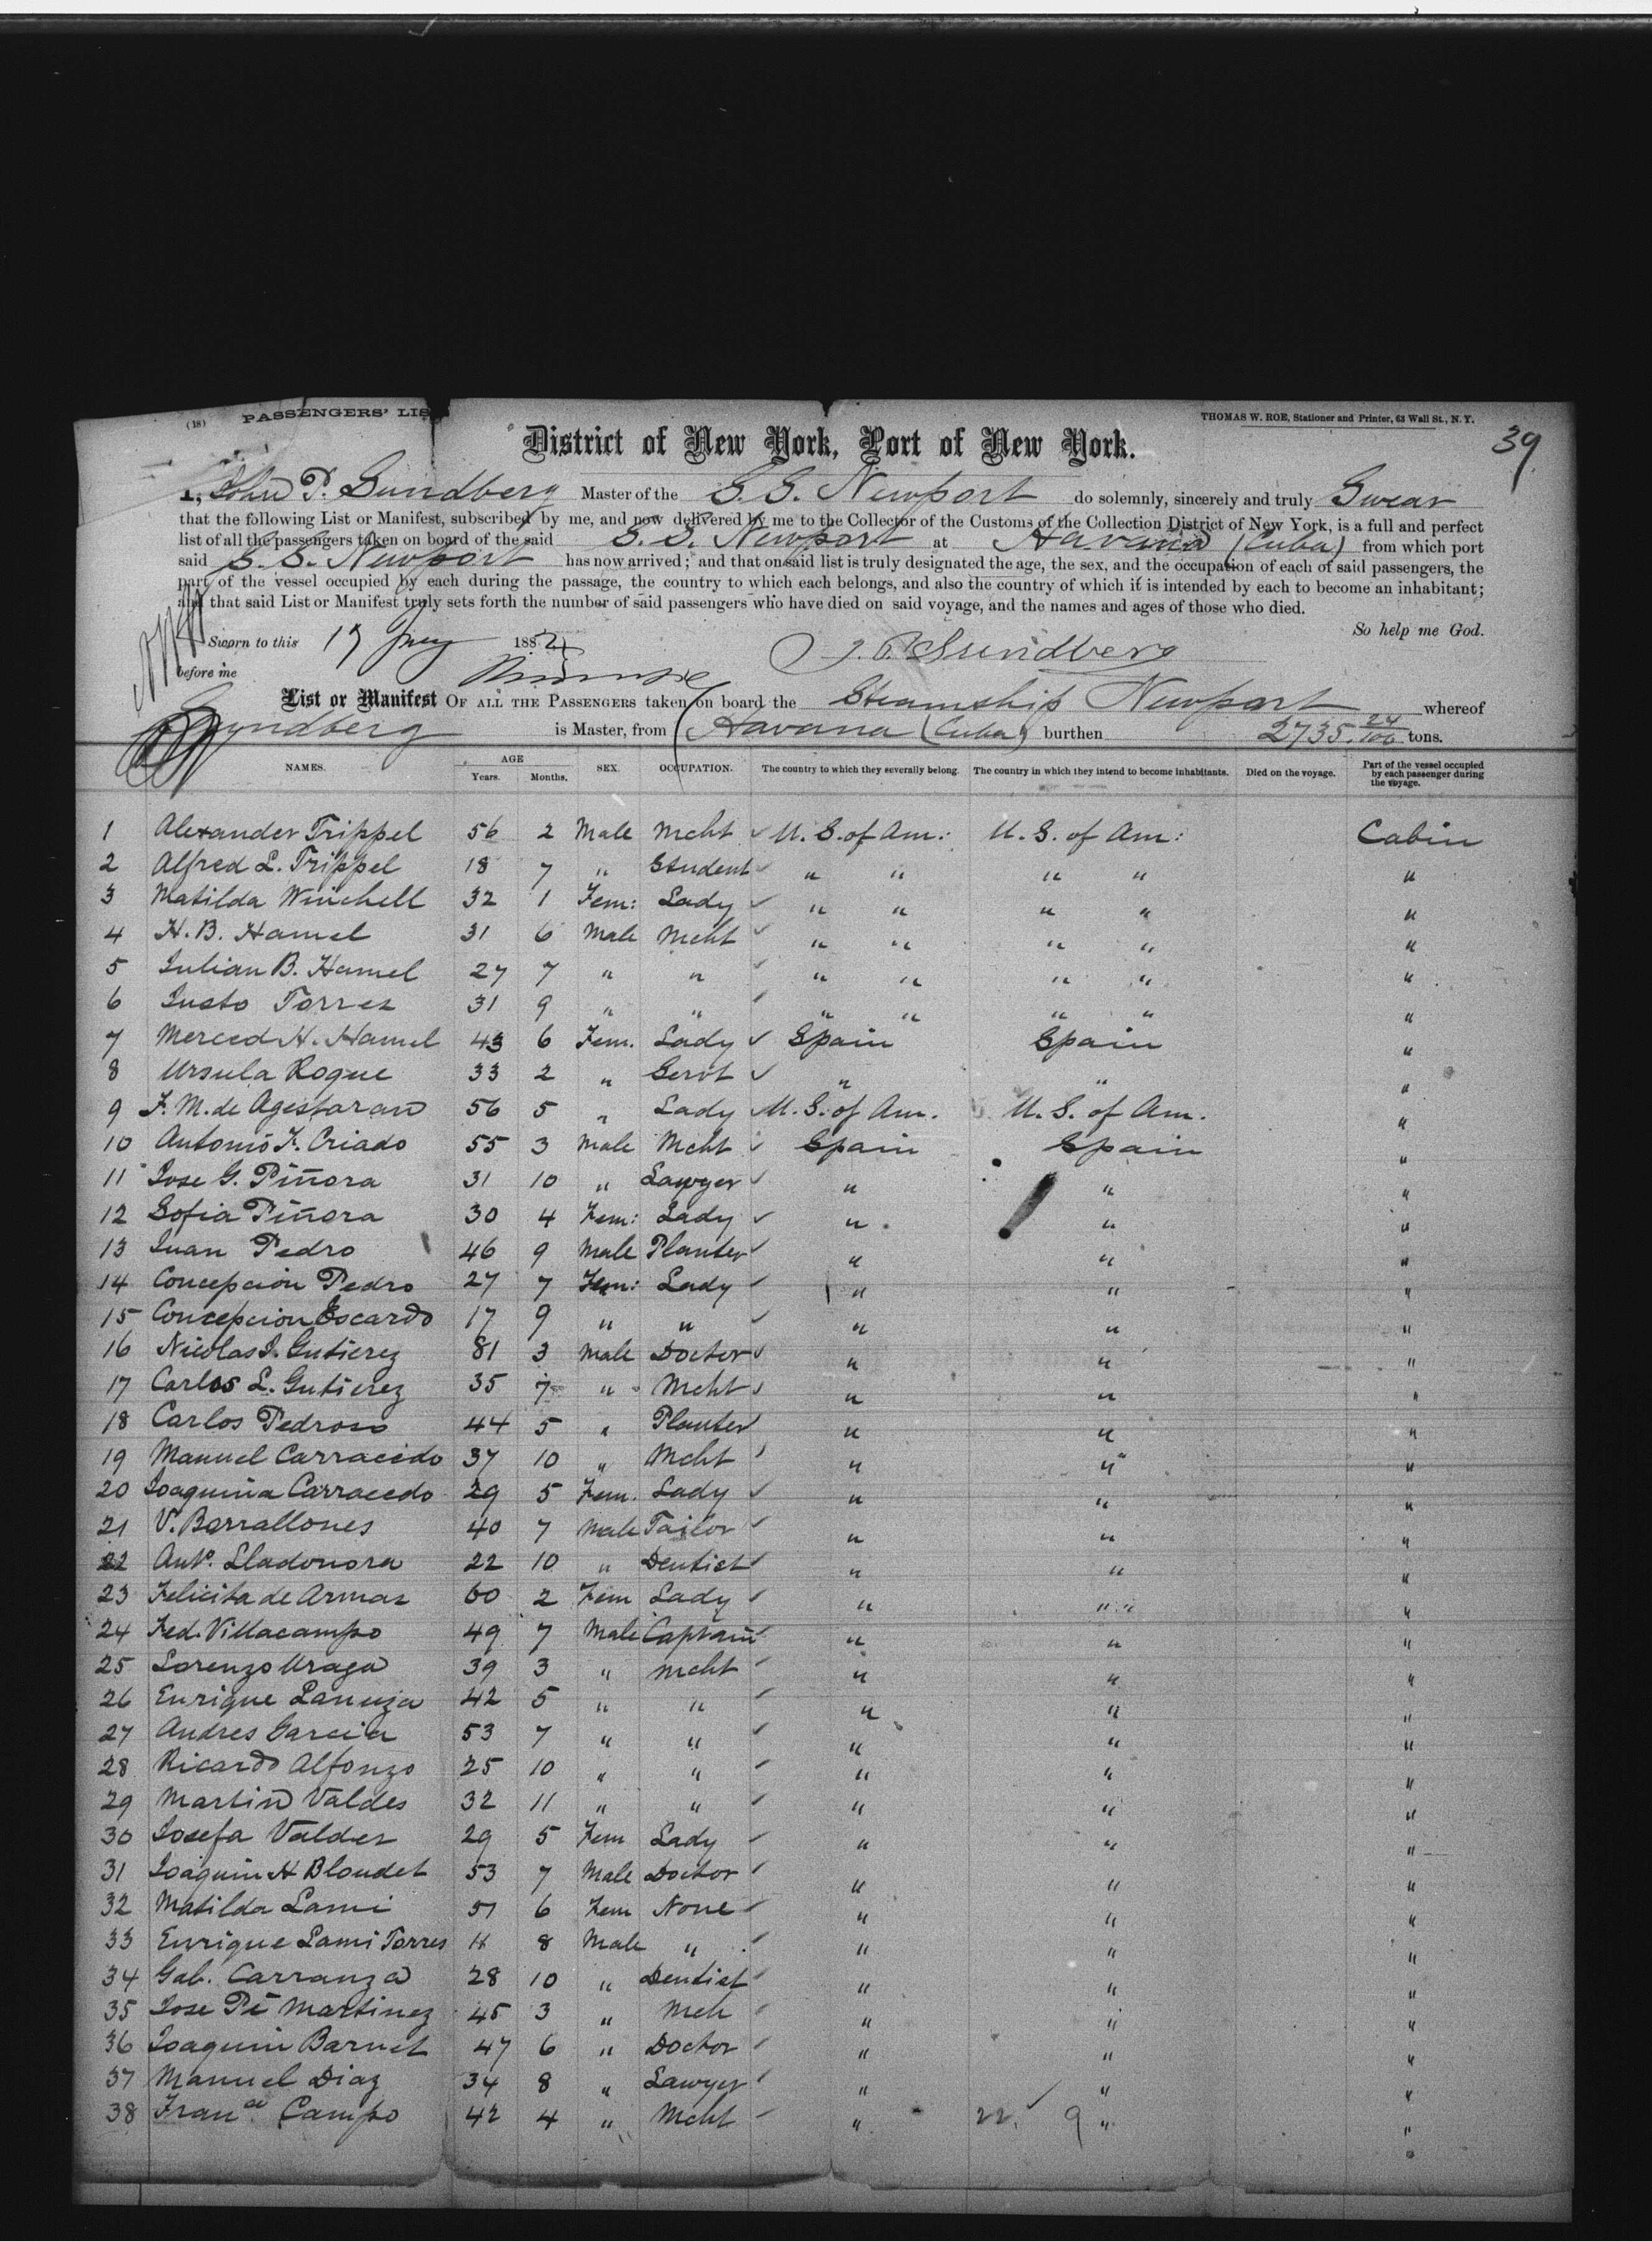 (18) PASSENGERS' LIS
THOMAS W. ROE, Stationer and Printer, 63 Wall St., N. Y.
39
District of New York, Port of New York.
I, John P. Sundberg Master of the S. S. Newport do solemnly, sincerely and truly Swear
that the following List or Manifest, subscribed by me, and now delivered by me to the Collector of the Customs of the Collection District of New York, is a full and perfect
list of all the passengers taken on board of the said S. S. Newport at Havana (Cuba) from which port
said S. S. Newport has now arrived; and that on said list is truly designated the age, the sex, and the occupation of each of said passengers, the
part of the vessel occupied by each during the passage, the country to which each belongs, and also the country of which it is intended by each to become an inhabitant;
and that said List or Manifest truly sets forth the number of said passengers who have died on said voyage, and the names and ages of those who died.
So help me God.
Sworn to this 17 188
J. P. Sundberg
before me
List or Manifest OF ALL THE PASSENGERS taken on board the Steamship Newport whereof
Sundberg is Master, from Havana (Cuba) burthen 2735 24/100 tons.
NAMES. AGE Years. Months. SEX. OCCUPATION. The country to which they severally belong. The country in which they intend to become inhabitants. Died on the voyage. Part of the vessel occupied by each passenger during the voyage.
1 Alexander Trippel 56 2 Male Mcht U. S. of Am: U. S. of Am: Cabin
2 Alfred L. Trippel 18 7 " Student " " " " "
3 Matilda Winchell 32 1 Fem: Lady " " " " "
4 H. B. Hamel 31 6 Male Mcht " " " " "
5 Julian B. Hamel 27 7 " " " " " " "
6 Justo Torres 31 9 " " " " " " "
7 Merced H. Hamel 43 6 Fem. Lady Spain Spain "
8 Ursula Roque 33 2 " Servt " " "
9 F. M. de Agestaran 56 5 " Lady U. S. of Am. U. S. of Am. "
10 Antonio F. Criado 55 3 Male Mcht Spain Spain "
11 Jose G. Piñora 31 10 " Lawyer " " "
12 Sofia Piñora 30 4 Fem: Lady " " "
13 Juan Pedro 46 9 Male Planter " " "
14 Concepcion Pedro 27 7 Fem: Lady " " "
15 Concepcion Escardo 17 9 " " " " "
16 Nicolas J. Gutierez 81 3 Male Doctor " " "
17 Carlos L. Gutierez 35 7 " Mcht " " "
18 Carlos Pedroso 44 5 " Planter " " "
19 Manuel Carracedo 37 10 " Mcht " " "
20 Joaquina Carracedo 29 5 Fem. Lady " " "
21 V. Barrallones 40 7 Male Tailor " " "
22 Anto. Lladonora 22 10 " Dentist " " "
23 Felicita de Armas 60 2 Fem Lady " " "
24 Fed. Villacampo 49 7 Male Captain " " "
25 Lorenzo Uraga 39 3 " Mcht " " "
26 Enrique Lanuza 42 5 " " " " "
27 Andres Garcia 53 7 " " " " "
28 Ricardo Alfonzo 25 10 " " " " "
29 Martin Valdes 32 11 " " " " "
30 Josefa Valdes 29 5 Fem Lady " " "
31 Joaquin H Bloudet 53 7 Male Doctor " " "
32 Matilda Lami 51 6 Fem None " " "
33 Enrique Lami Torres 11 8 Male " " " "
34 Gab. Carranza 28 10 " Dentist " " "
35 Jose Pé Martinez 45 3 " Mch " " "
36 Joaquin Barnet 47 6 " Doctor " " "
37 Manuel Diaz 34 8 " Lawyer " " "
38 Franco. Campo 42 4 " Mcht " 22. 9 " "